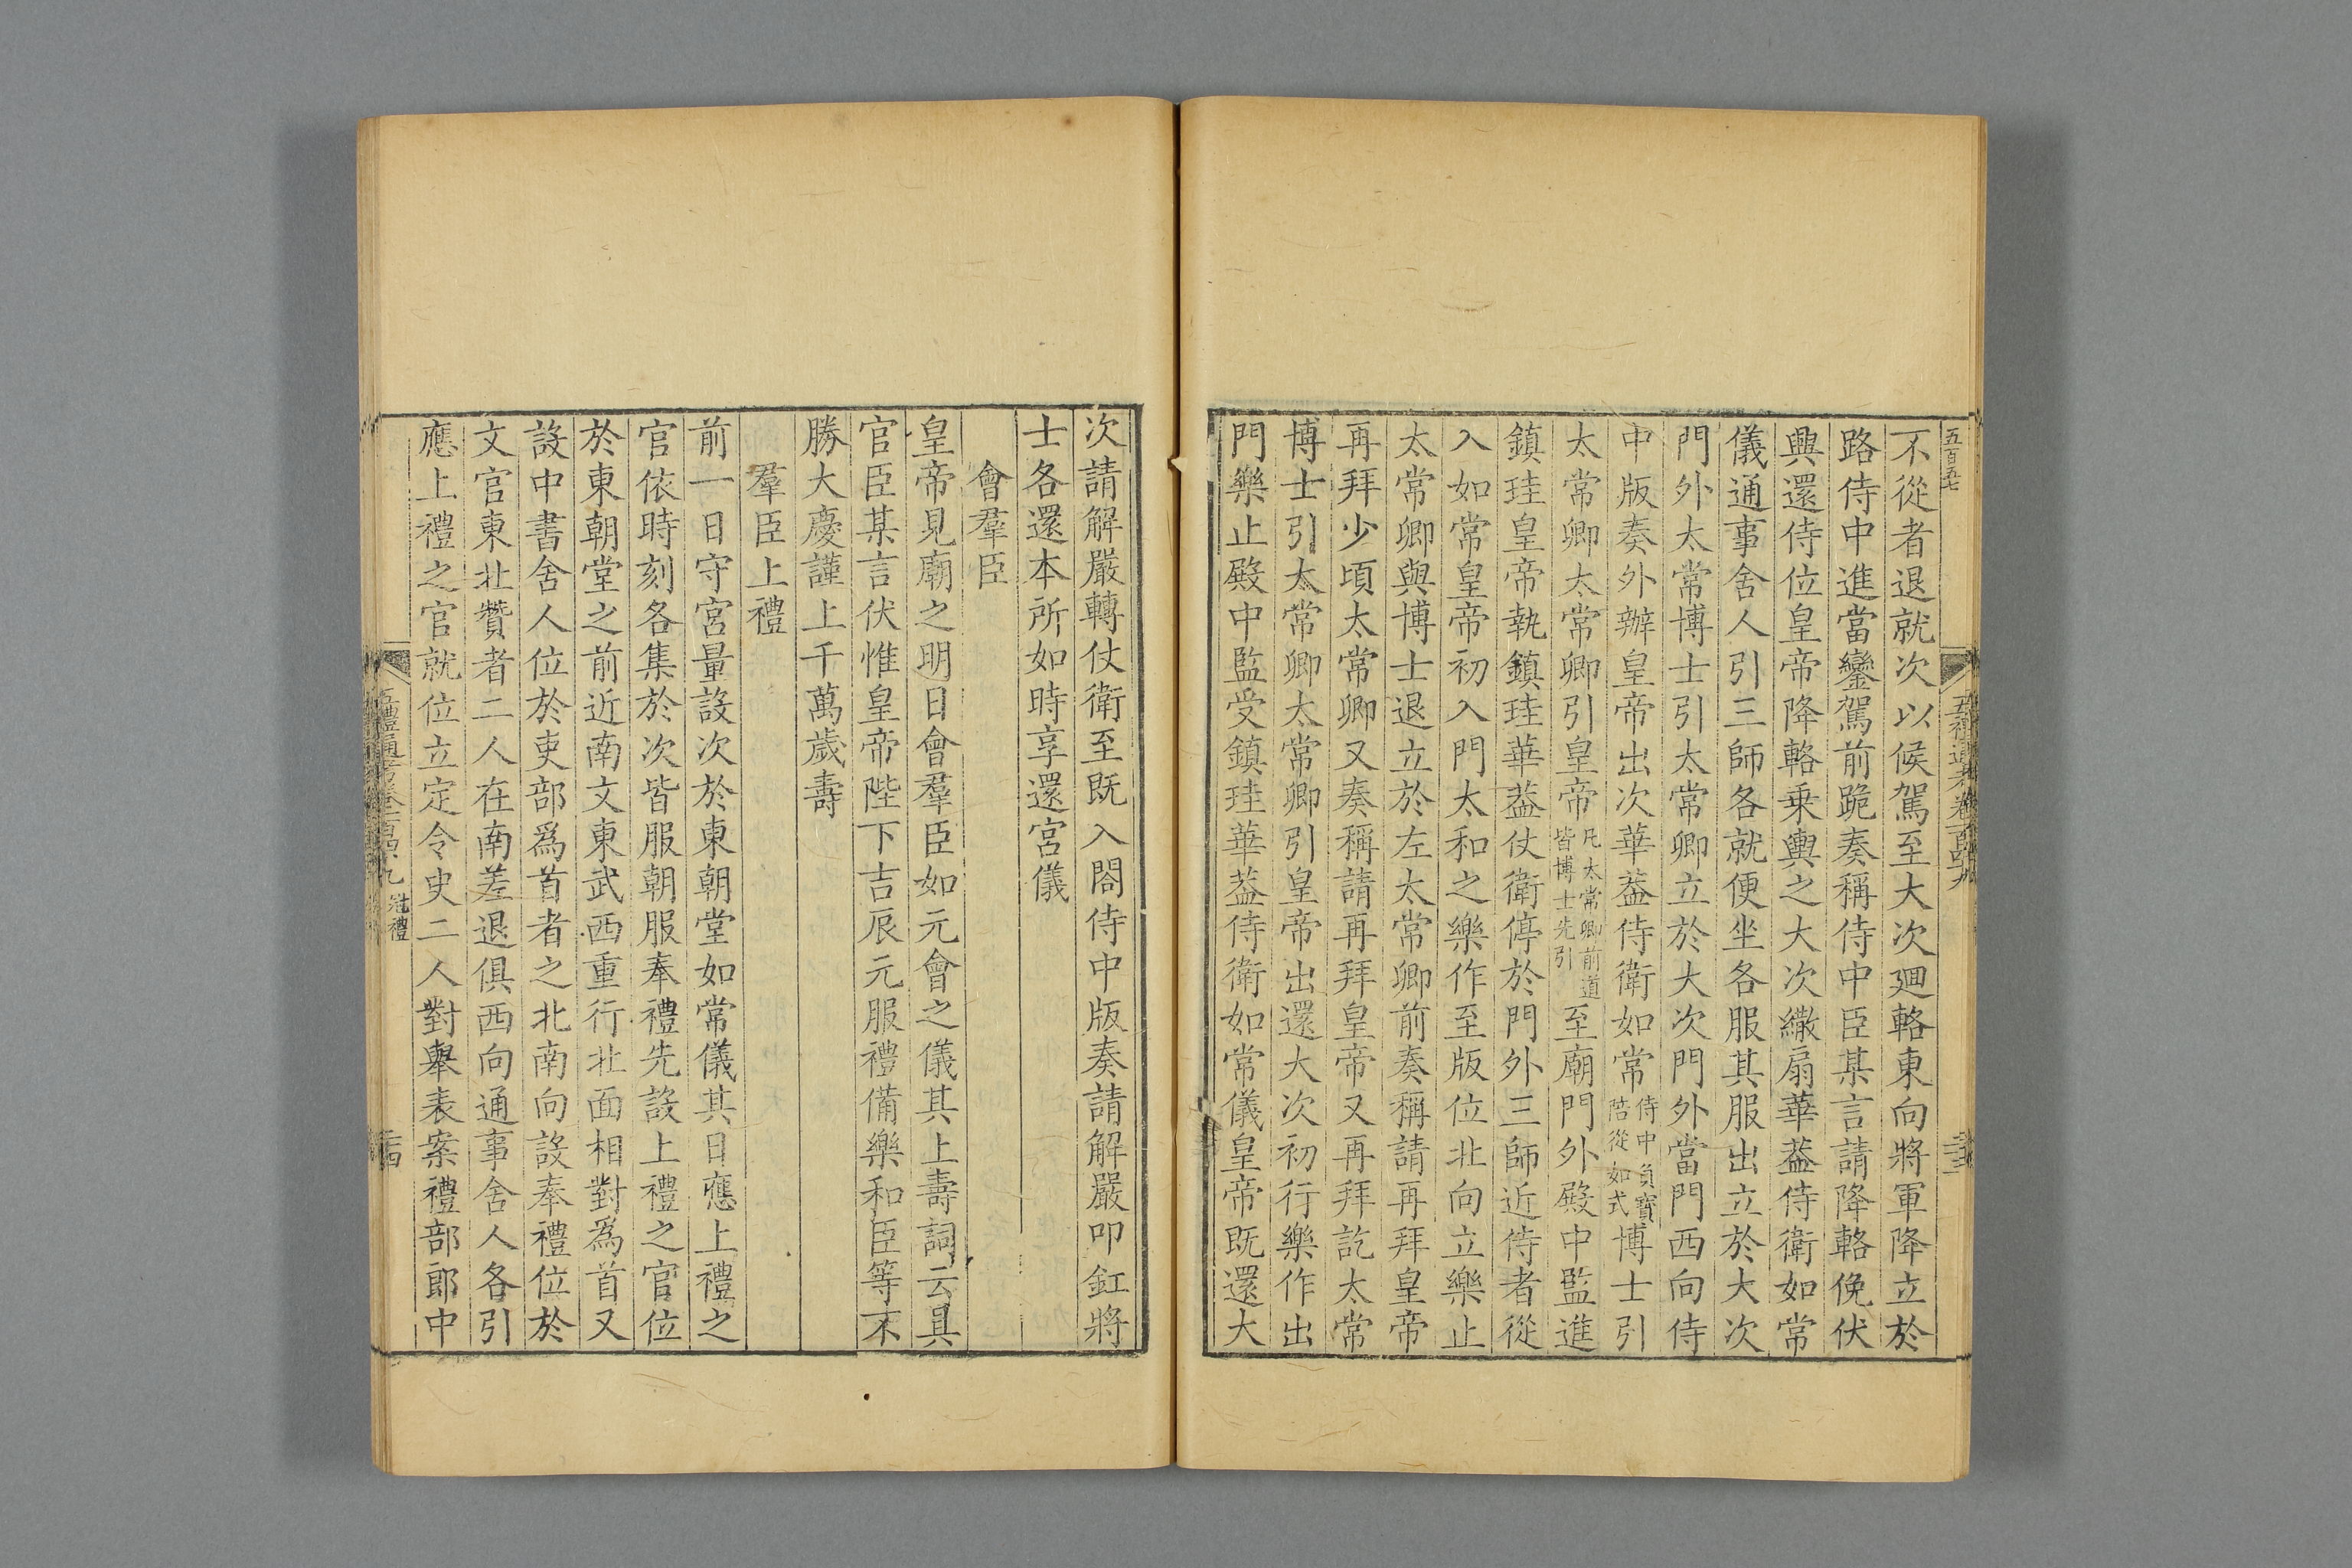 五百五七
五禮通考卷一百四十九
不從者退就次以候駕至大次廻輅東向將軍降立於
路侍中進當鑾駕前跪奏稱侍中臣某言請降輅俛伏
興還侍位皇帝降輅乗輿之大次繖扇華葢侍衛如常
儀通事舍人引三師各就便坐各服其服出立於大次
門外太常博士引太常卿立於大次門外當門西向侍
中版奏外辦皇帝出次華葢侍衛如常侍中負寳陪從如式博士引
太常卿太常卿引皇帝凡太常卿前道皆博士先引至廟門外殿中監進
鎮珪皇帝執鎮珪華葢仗衛停於門外三師近侍者從
入如常皇帝初入門太和之樂作至版位北向立樂止
太常卿與博士退立於左太常卿前奏稱請再拜皇帝
再拜少頃太常卿又奏稱請再拜皇帝又再拜訖太常
博士引太常卿太常卿引皇帝出還大次初行樂作出
門樂止殿中監受鎮珪華葢侍衛如常儀皇帝既還大
次請解嚴轉仗衛至既入閤侍中版奏請解嚴叩釭將
士各還本所如時享還宮儀
會羣臣
皇帝見廟之明日會羣臣如元會之儀其上壽詞云具
官臣某言伏惟皇帝陛下吉辰元服禮備樂和臣等不
勝大慶謹上千萬歲壽
羣臣上禮
前一日守宮量設次於東朝堂如常儀其日應上禮之
官依時刻各集於次皆服朝服奉禮先設上禮之官位
於東朝堂之前近南文東武西重行北面相對爲首又
設中書舍人位於吏部爲首者之北南向設奉禮位於
文官東北贊者二人在南差退俱西向通事舍人各引
應上禮之官就位立定令史二人對舉表案禮部郎中
五禮通考卷一百四十九 冠禮
二十四